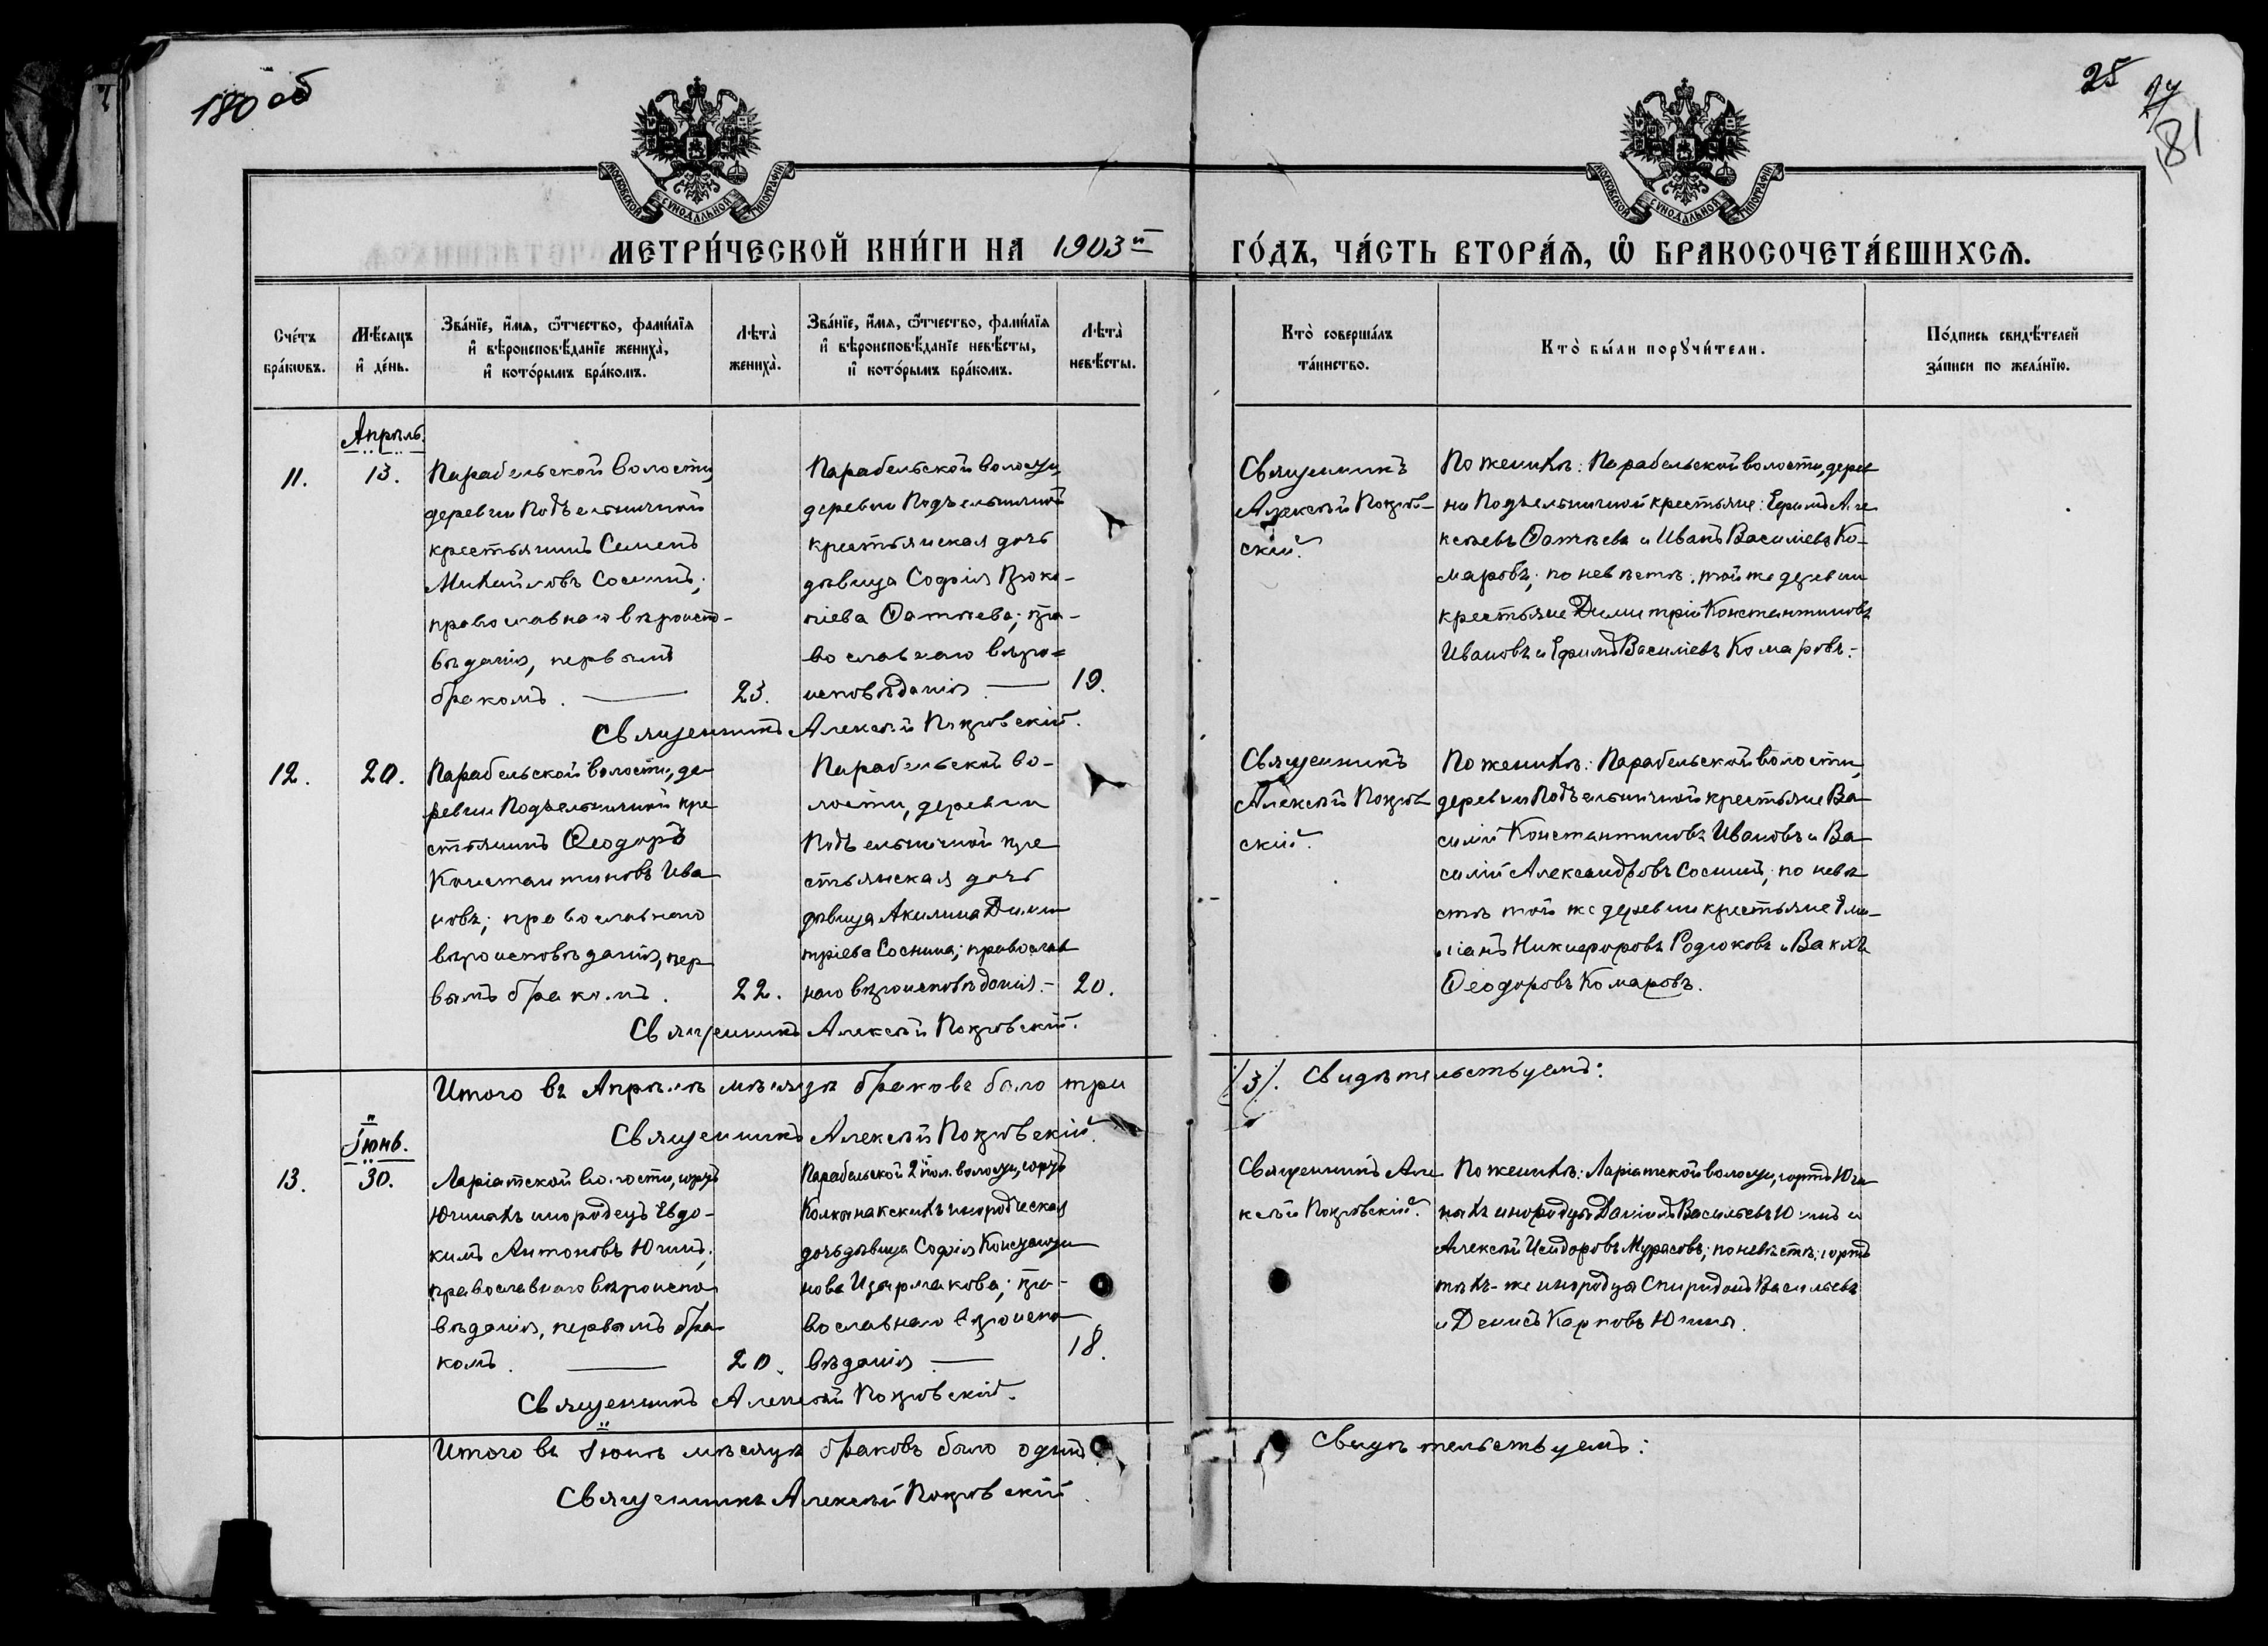 180 об
25
181
МОСКОВСКОЙ СѴНОДАЛЬНОЙ ТИПОГРАФІИ
МОСКОВСКОЙ СѴНОДАЛЬНОЙ ТИПОГРАФІИ
МЕТРИ́ЧЕСКОЙ КНИ́ГИ НА 1903й
ГО́ДЪ, ЧА́СТЬ ВТОРА́Ѧ, Ѽ БРАКОСОЧЕТА́ВШИХСѦ.
Сче́тъ
бра́кѡвъ.
Мѣ́сяцъ
и҆ де́нь.
Зва́нїе, и҆́мѧ, ѻ҆́тчество, фами́лїѧ
и҆ вѣроисповѣ́данїе жениха̀,
и҆ кото́рымъ бра́комъ.
Лѣта̀
жениха̀.
Зва́нїе, и҆́мѧ, ѻ҆́тчество, фами́лїѧ
и҆ вѣроисповѣ́данїе невѣ́сты,
и҆ кото́рымъ бра́комъ.
Лѣта̀
невѣ́сты.
Кто̀ соверша́лъ
та́инство.
Кто̀ бы́ли порꙋчи́тели.
По́дпись свидѣ́телей
за́писи по жела́нїю.
Апрѣль.
11.
13.
Парабельской волости,
деревни Подъельничной
крестьянинъ Семенъ
Михайловъ Соснинъ;
православнаго вѣроиспо-
вѣданія, первымъ
бракомъ.
23.
Парабельской волости
деревни Подъельничной
крестьянская дочь
дѣвица Софія Проко-
піева Ѳатѣева; пра-
вославнаго вѣро=
исповѣданія.
19.
Священникъ Алексѣй Покровскій.
Священникъ
Алексѣй Покров-
скій.
По женихѣ: Парабельской волости, дерев
ни Подъельничной крестьяне: Ефимъ Але
ксѣевъ Ѳатѣевъ и Иванъ Василіевъ Ко-
маровъ; по невѣстѣ: той же деревни
крестьяне Димитрій Константиновъ
Ивановъ и Ефимъ Василіевъ Комаровъ.
12.
20.
Парабельской волости, де
ревни Подъельничной кре
стьянинъ Ѳеодоръ
Константиновъ Ива
новъ; православнаго
вѣроисповѣданія, пер
вымъ бракомъ.
22.
Парабельской во-
лости, деревни
Подъельничной кре
стьянская дочь
дѣвица Акилина Дими
тріева Соснина; православ
наго вѣроисповѣданія.-
20.
Священникъ Алексѣй Покровскій.
Священникъ
Алексѣй Покров
скій.
По женихѣ: Парабельской волости,
деревни Подъельничной крестьяне Ва-
силій Константиновъ Ивановъ и Ва-
силій Александровъ Соснинъ, по невѣ
стѣ той же деревни крестьяне Эми-
ліанъ Никифоровъ Родюковъ и Вакхъ
Ѳеодоровъ Комаровъ.
Итого въ Апрѣлѣ мѣсяцѣ браковъ было три
/3/. Свидѣтельствуемъ:
Священникъ Алексѣй Покровскій.
Іюнь.
13.
30.
Ларіатской волости, юртъ
Югиныхъ инородецъ Евдо-
кимъ Антоновъ Югинъ,
православнаго вѣроиспо
вѣданія, первымъ бра
комъ.
20.
Парабельской 2 пол. волости, юртъ
дочь дѣвица Софія Константи
православнаго вѣроиспо
вѣданія
18.
Священникъ Алексѣй Покровскій.
Священникъ Але
ксѣй Покровскій.
По женихѣ: Ларіатской волости, юртъ Юги
ныхъ инородцы Даніилъ Васильевъ Югинъ и
Алексѣй Исидоровъ Мурасовъ; по невѣстѣ: юртъ
тѣхъ-же инородцы Спиридонъ Васильевъ
и Денисъ Карповъ Югины.
Итого въ Іюнѣ мѣсяцѣ браковъ было одинъ.
Свидѣтельствуемъ:
Священникъ Алексѣй Покровскій